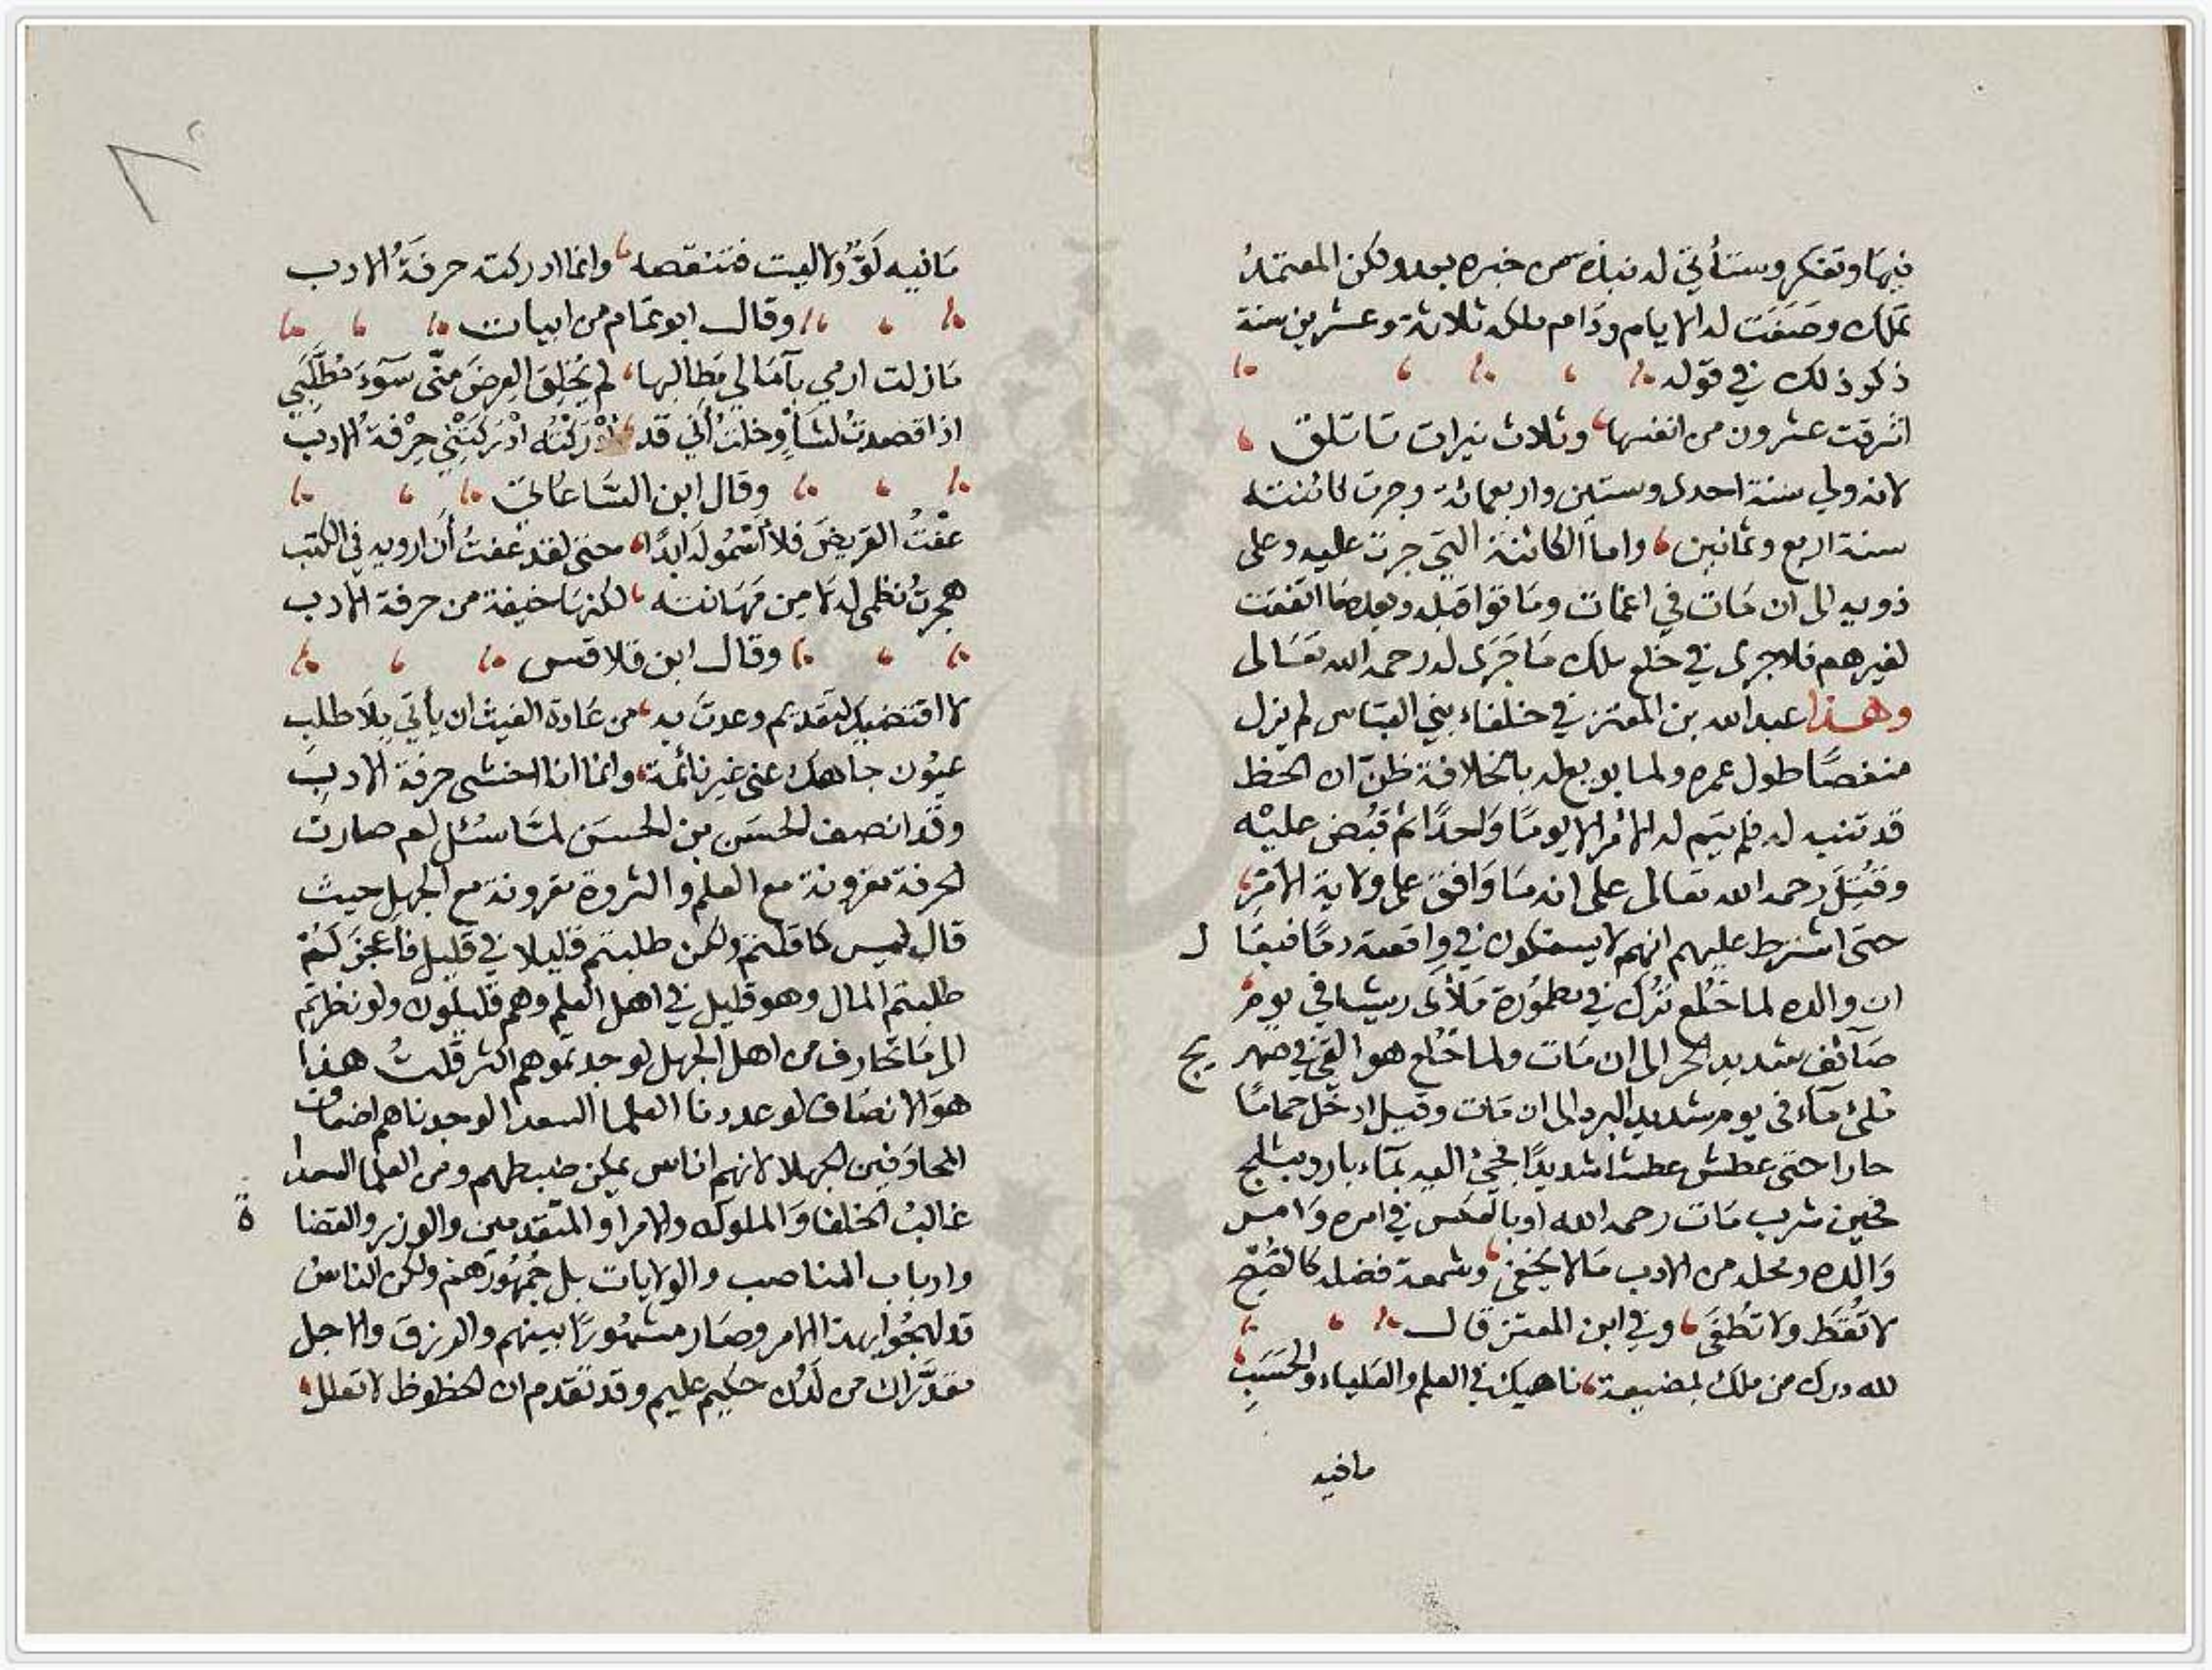 فيها وتفكر وستأتي له نبذة من خبره بعد ولكن المعتمد
تملك وصفت له الايام ودام ملكه ثلاثة وعشرين سنة
ذكر ذلك في قوله
اشرقت عشرون من انفسها وثلاث نيرات تأتلق
لانه ولي سنة احدى وستين واربعمائة وجرت كائنته
سنة اربع وثمانين واما الكائنة التي جرت عليه وعلى
ذويه الى ان مات في اغمات وما قبله وبعدها اتفقت
لغيرهم فلا جرى في خلع ملك ما جرى له رحمه الله تعالى
وهذا عبد الله بن المعتز في خلفاء بني العباس لم يزل
منغصًا طول عمره ولما بويع له بالخلافة ظنّ ان الحظ
قد تنبه له فلم يتم له الأمر الا يومًا واحدًا ثم قُبض عليْه
وقُتِلَ رحمه الله تعالى على انه ما وافق على ولاية الأمر
حتى اشترط عليهم انهم لا يسفكون في واقعته دمًا فيقال
ان والده لما خُلع تُرك في مطمُورة ملأى ريشا في يوم
صَائف شديد الحر الى ان مَات ولما خُلع هو القي في صهريج
ملئ مآء في يوم شديد البرد الى ان مَات وقيل ادخل حمامًا
حارا حتى عطش عطشا شديدًا فجئ اليه بمآء بارد بثلج
فحين شرب مَات رحمه الله او بالعكس في امره وامر
والده ومحله من الادب مَا لا يخفى وشمعة فضله كالصُّبْح
لا تُقَط ولا تُطفى وفي ابن المعتز قال
لله درك من ملك بمضيعة ناهيك في العلم والعلياء والحَسَبِ
مافيه
مَا فيه لَوٌّ ولا ليت فتنقصه وانما ادركته حرفَةُ الادب
وقال ابو تمام من ابيات
مَا زلت ارمي بآمَالي مَطالِبها لم يُخْلِقِ العِرضَ منّي سُوءَ مُطَّلَبِي
اذا قصدتُ لشَأْوٍ خلتُ أني قد أدْرَكتُه ادْرَكَتْنِي حِرْفةُ الادب
وقال ابن السَّاعاتي
عفتُ القريض فلا أَسْمُو له ابدًا حتى لقد عفتُ أن ارويه في الكتب
هجرتُ نظمي له لا مِن مَهَانته لكنهَا خيفة من حرفة الادب
وقال ابن قلاقس
لا اقتضيك لتقديم وعدتَ به من عَادة الغيث ان يأتي بِلَا طلبِ
عيُون جاهك عني غير نائمة وانما انا اخشى حرفة الادبِ
وقد انصف الحسَن بن الحسَن لمّا سُئل لم صارت
الحرفة مقرونة مع العلم والثروة مقرونة مع الجهل حيث
قال ليس كما قلتم ولكن طلبتم قليلا في قليل فأعجزكُمْ
طلبتم المال وهو قليل في اهل العلم وهم قليلون ولو نظرتم
الى مَا تحارف من اهل الجهل لوجدتموهم اكثر قلتُ هذا
هوَ الانصَاف لو عددنا العلما السعدا لوجدناهم اضعاف
المحارَفين الجهلا لانهم اناس يمكن ضبطهم ومن العلما السعدا
غالبُ الخلفا وَالملوك والامراو المتقدمين والوزر والقضاة
وارباب المناصب والولايات بل جُمهُورهم ولكن الناسُ
قد لهجُوا بهذا الامر وصَار مشهُورًا بينهم والرزق والاجل
مقدَّران من لَدُن حكيم عليم وقد تقدم ان الحظوظ لا تعلل